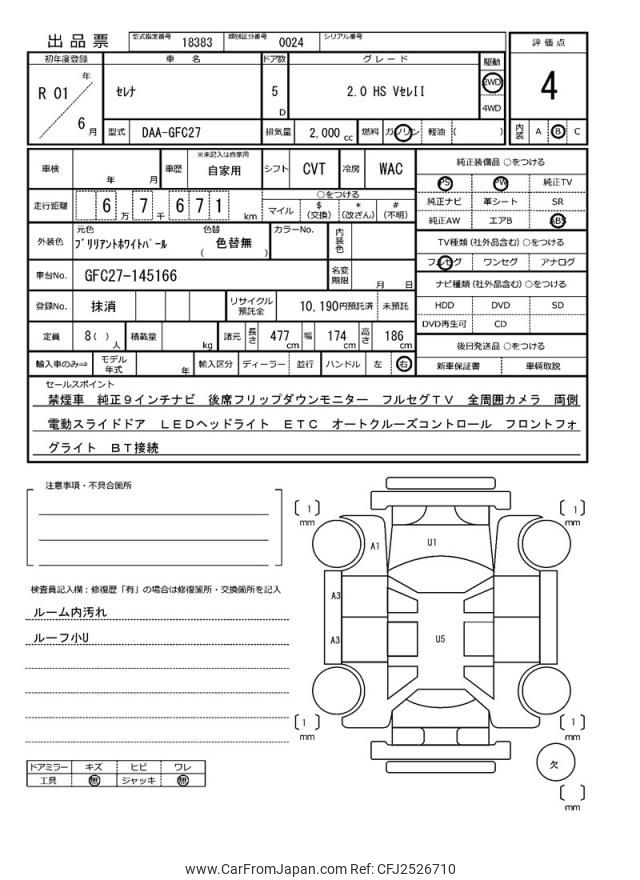 出品票 型式指定番号 18383 類別区分番号 0024 シリアル番号
評価点
初年度登録 車名 ドア数 グレード 駆動
R 01 年 6 月 セレナ 5 D 2.0 HS VセレII 2WD 4WD 4
型式 DAA-GFC27 排気量 2,000 cc 燃料 ガソリン 軽油 ( ) 内装 A B C
車検 年 月 車歴 ※未記入は自家用 自家用 シフト CVT 冷房 WAC
純正装備品 ○をつける
PS PW 純正TV
純正ナビ 革シート SR
純正AW エアB ABS
走行距離 6 万 7 千 6 7 1 km
○をつける
マイル $ (交換) * (改ざん) # (不明)
TV種類 (社外品含む) ○をつける
フルセグ ワンセグ アナログ
外装色 元色 ブリリアントホワイトパール 色替 ( 色替無 ) カラーNo. 内装色
ナビ種類 (社外品含む) ○をつける
HDD DVD SD
DVD再生可 CD
車台No. GFC27-145166 名変期限 月 日
登録No. 抹消 リサイクル預託金 10,190円預託済 未預託
定員 8( ) 人 積載量 kg 諸元 長さ 477 cm 幅 174 cm 高さ 186 cm
後日発送品 ○をつける
新車保証書 車輌取説
輸入車のみ⇒ モデル年式 年 輸入区分 ディーラー 並行 ハンドル 左 右
セールスポイント
禁煙車 純正9インチナビ 後席フリップダウンモニター フルセグTV 全周囲カメラ 両側
電動スライドドア LEDヘッドライト ETC オートクルーズコントロール フロントフォ
グライト BT接続
注意事項・不具合箇所
検査員記入欄：修復歴「有」の場合は修復箇所・交換箇所を記入
ルーム内汚れ
ルーフ小U
ドアミラー キズ ヒビ ワレ
工具 無 ジャッキ 無
[ 1 ] mm
[ 1 ] mm
A1 U1
A3
A3 U5
[ 1 ] mm
[ 1 ] mm
欠
[ ] mm
www.CarFromJapan.com Ref: CFJ2526710